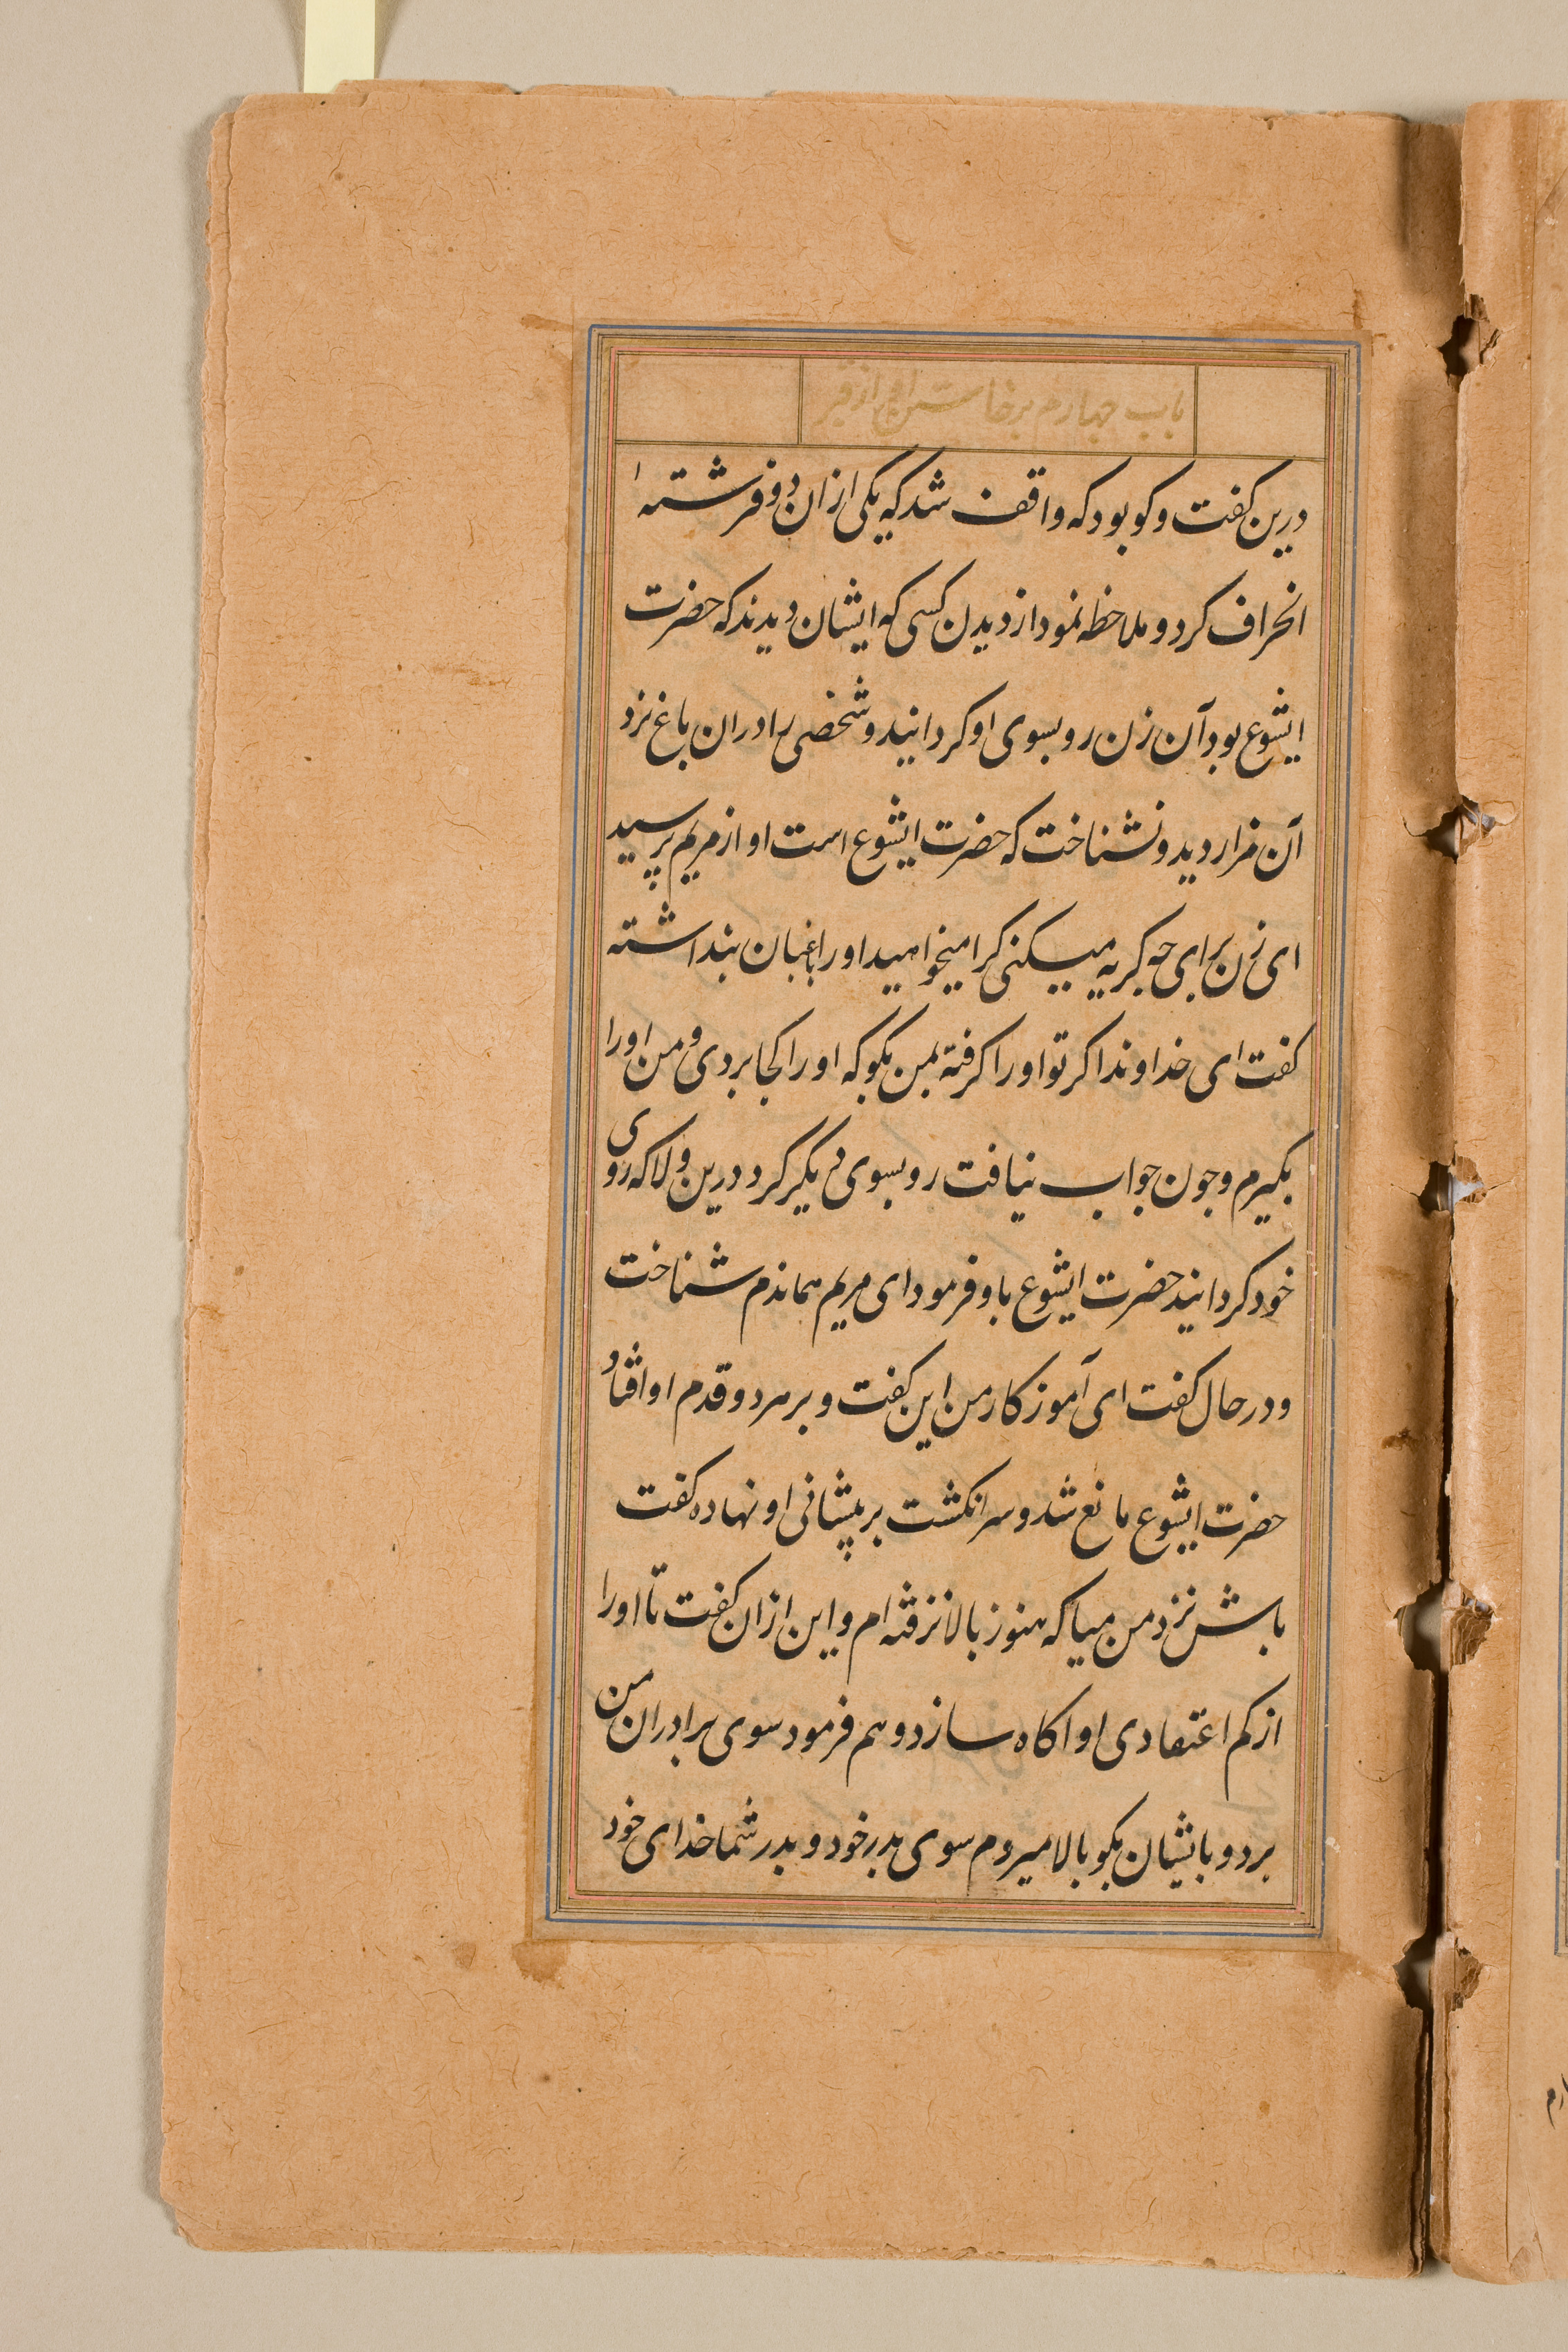 باب چهارم برخاستن او از قبر
درین کفت وکو بود که واقف شد که یکی ازان دو فرشته ا
انحراف کرد و ملاحظه نمود از دیدن کسی که ایشان دیدند که حضرت
ایشوع بود آن زن رو بسوی او کردانید و شخصی را دران باغ نزد
آن مزار دید و نشناخت که حضرت ایشوع است او از مریم پرسید
ای زن برای چه کریه میکنی کرا میخواهید او را باغبان بنداشته
کفت ای خداوند اکر تو او را کرفته بمن بکو که او را کجا بردی و من او را
بکیرم و جون جواب نیافت رو بسوی دیکر کرد درین ولا که روی
خود کردانید حضرت ایشوع باو فرمود ای مریم هماندم شناخت
و در حال کفت ای آموزکار من این کفت و بر هر دو قدم او افتاد
حضرت ایشوع مانع شد و سر انکشت بر پیشانی او نهاده کفت
باش نزد من میا که هنوز بالا نرفته ام و این ازان کفت تا او را
از کم اعتقادی او اکاه سازد و هم فرمود سوی برادران من
برو و بایشان بکو بالا میروم سوی بدر خود و بدر شما خدای خود